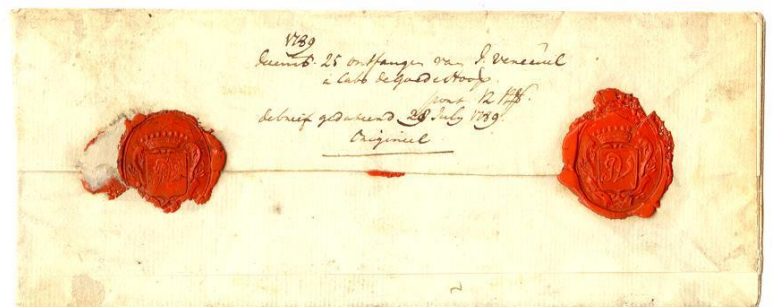 1789
decemb. 25 ontfangen van J. Veneviel
à Cabo de goede Hoop.
port 12
de brief gedateerd 28 July 1789.
Origineel